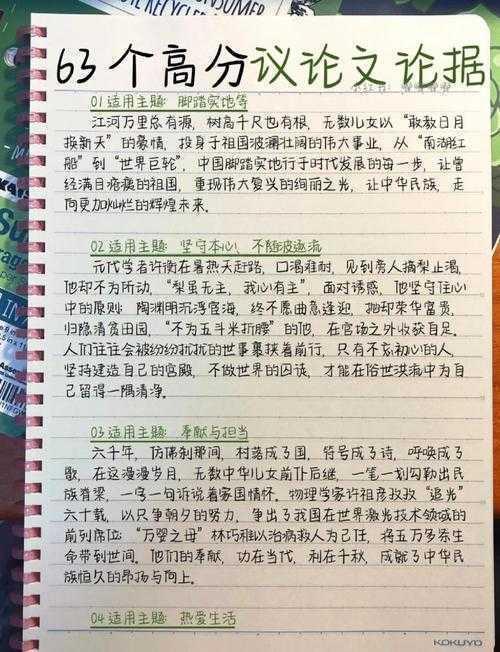 CONSUMER
RECYCLE
63个高分议论文论据
01 适用主题: 脚踏实地等
江河万里总有源, 树高千尺也有根, 无数儿女以“敢教日月
换新天”的豪情, 投身于祖国波澜壮阔的伟大事业, 从“南湖红
船”到“世界巨轮”, 中国脚踏实地行于时代发展的每一步, 让曾
经满目疮痍的祖国, 重现伟大复兴的绚丽之光, 让中华民族, 走
向更加灿烂的辉煌未来.
02 适用主题: 坚守本心, 不随波逐流
元代学者许衡在暑热天赶路, 口渴难耐, 见到旁人摘梨止渴,
他却不为所动, “梨虽无主, 我心有主”, 面对诱惑, 他坚守住心
中的原则: 陶渊明沉浮宦海, 终不愿曲意逢迎, 抛却荣华富贵,
归隐清贫田园, “不为五斗米折腰”的他, 在官场之外收获自足.
人们往往会被纷纷扰扰的世事裹挟着前行, 只有不忘初心的人,
坚持建造自己的宫殿, 不做世界的囚徒, 才能在俗世洪流中为自
己留得一隅清净.
03 适用主题: 奉献与担当
六千年, 仿佛刹那间, 村落成了国, 符号成了诗, 呼唤成了
歌, 在这漫漫岁月, 无数中华儿女前仆后继, 一笔一划勾勒出民
族脊梁, 一字一句诉说着家国情怀, 物理学家许祖彦孜孜“追光”
六十载, 以只争朝夕的努力, 争出了我国在世界激光技术领域的
前列席位; “万婴之母”林巧稚以治病救人为己任, 将五万多条生
命带到世间. 他们的奉献, 功在当代, 利在千秋, 成就了中华民
族恒久的昂扬与向上.
04 适用主题: 热爱生活
KOKUYO